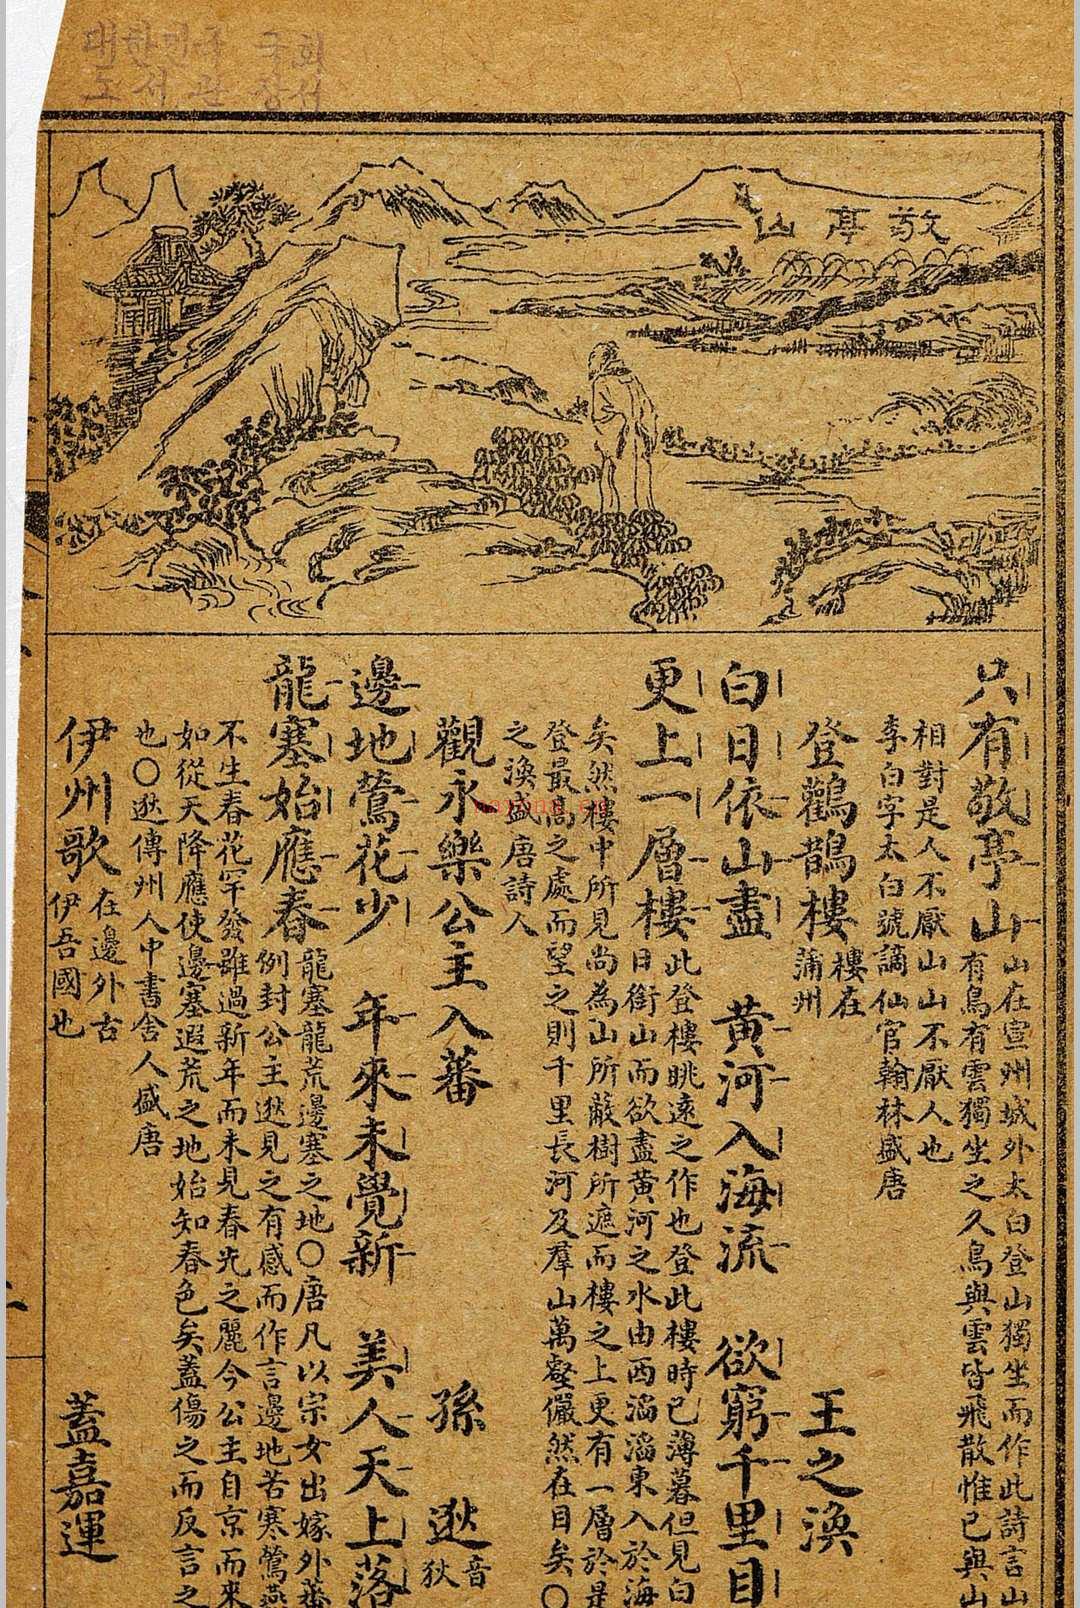 대한민국 국회
도서관장서
敬亭山
只有敬亭山
山在宣州城外太白登山獨坐而作此詩言山
有鳥有雲獨坐之久鳥與雲皆飛散惟已與山
相對是人不厭山山不厭人也
李白字太白號謫仙官翰林盛唐
登鸛鵲樓
樓在
蒲州
王之渙
白日依山盡 黃河入海流 欲窮千里目
更上一層樓
此登樓眺遠之作也登此樓時已薄暮但見白
日銜山而欲盡黃河之水由西滔滔東入於海
矣然樓中所見尚為山所蔽樹所遮而樓之上更有一層於是
登最高之處而望之則千里長河及羣山萬壑儼然在目矣〇
之渙盛唐詩人
觀永樂公主入蕃
孫逖
音
狄
邊地鶯花少 年來未覺新 美人天上落
龍塞始應春
龍塞龍荒邊塞之地〇唐凡以宗女出嫁外蕃
例封公主逖見之有感而作言邊地苦寒鶯燕
不生春花罕發雖過新年而未見春光之麗今公主自京而來
如從天降應使邊塞遐荒之地始知春色矣蓋傷之而反言之
也〇逖傳州人中書舍人盛唐
伊州歌
在邊外古
伊吾國也
蓋嘉運